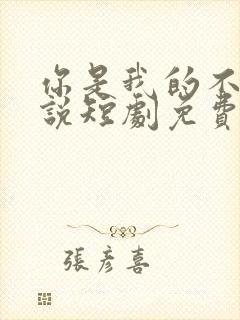 你是我的不
說短劇免費
張彥喜